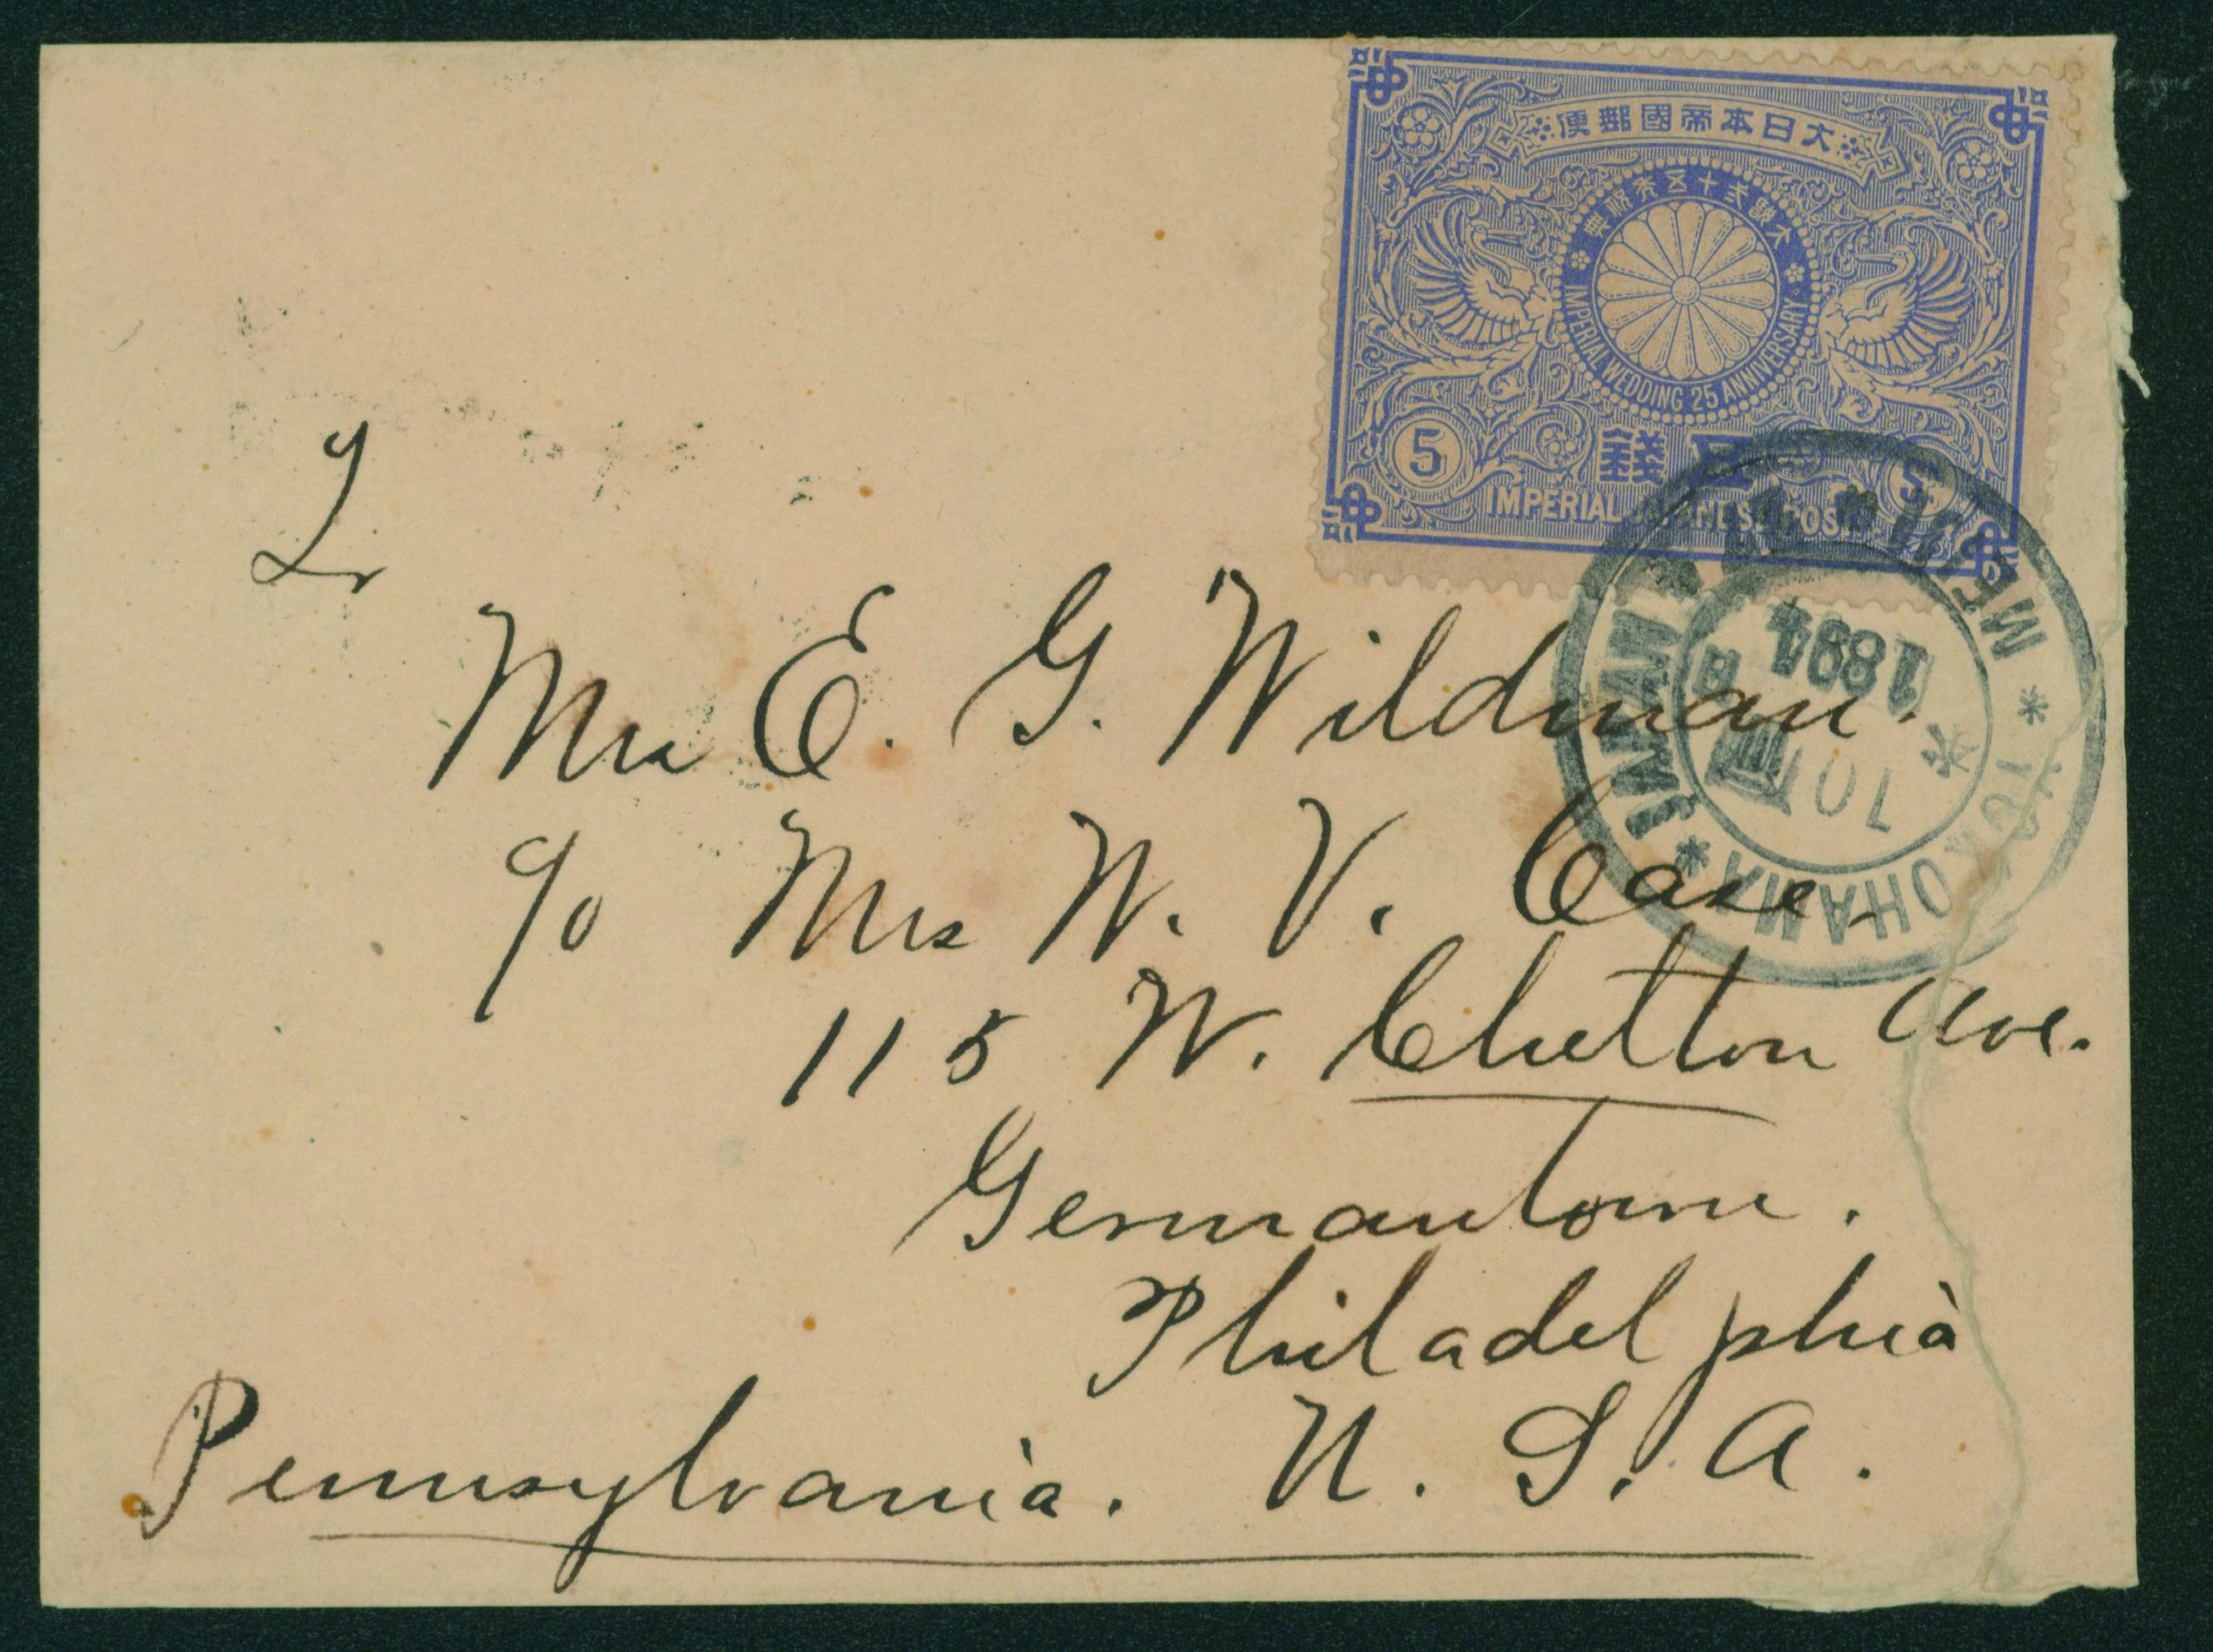 大日本帝國郵便
大婚貳十五年祝典
IMPERIAL WEDDING 25 ANNIVERSARY
5 錢五 5
IMPERIAL JAPANESE POST
YOKOHAMA
JAPAN
10
1894
Mrs E. G. Wildman.
c/o Mrs W. V. Case
115 W. Chelton Ave.
Germantown.
Philadelphia
Pennsylvania. U. S. A.